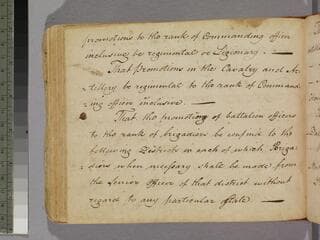 promotions to the rank of Commanding officer
inclusive, be regimental or Legionary. —
That promotions in the Cavalry and Ar-
tillery be regimental to the rank of Command-
ing officer inclusive. —
That the promoting of battalion officers
to the rank of brigadiers be confined to the
following Districts in each of which Briga-
diers when necessary shall be made from
the Senior officers of that district without
regard to any particular State. —